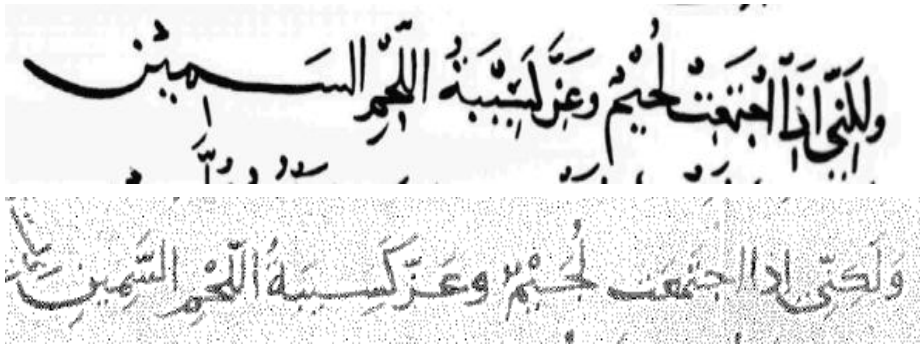 وَلَكِنِّي اِذَا اجْتَمَعَتْ لُجَيْمٌ وَعَزَّ كَسِيبَةُ اللَّحْمِ السَمِينِ
وَلَكِنِّي اِذا اجتَمعَت لُجَيْمٌ وعَزّ كَسِيبَةُ اللّحْمِ السَّمِينِ